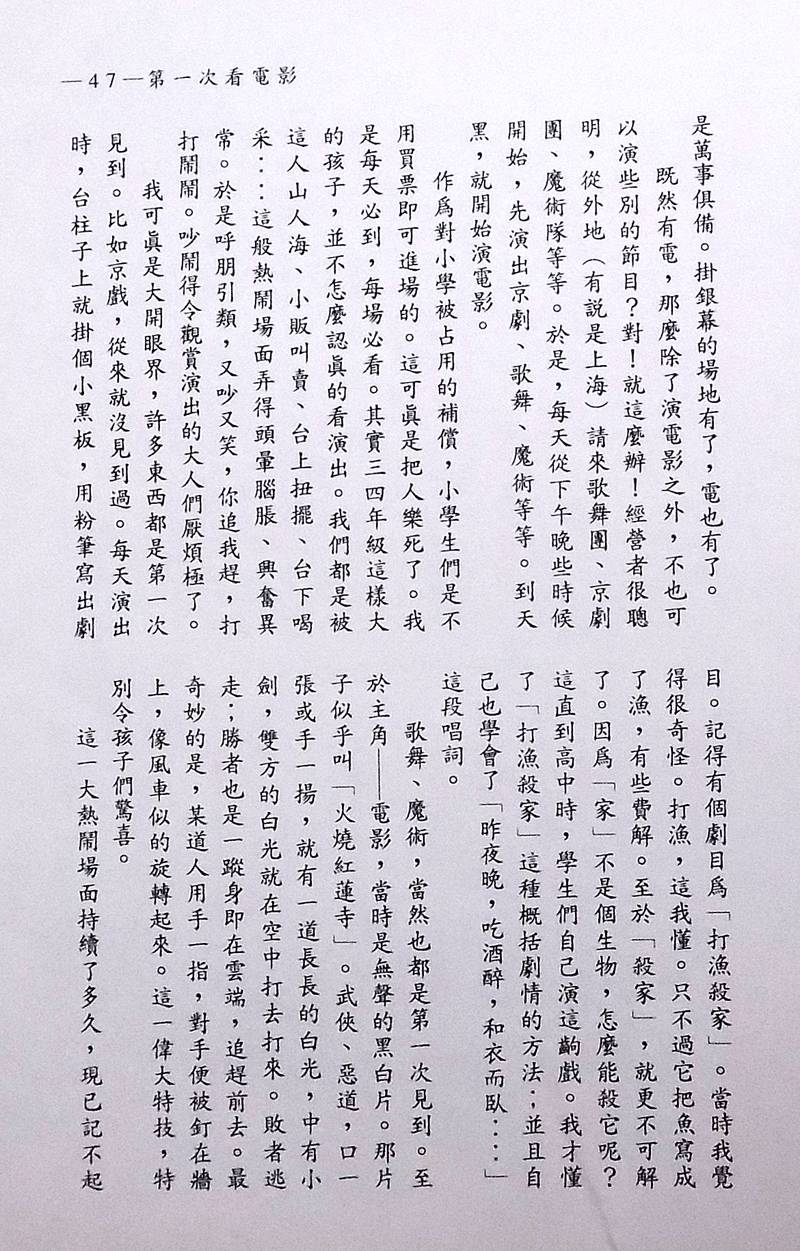 —47—第一次看電影
是萬事俱備。掛銀幕的場地有了，電也有了。
既然有電，那麼除了演電影之外，不也可
以演些別的節目？對！就這麼辦！經營者很聰
明，從外地（有説是上海）請來歌舞團、京劇
團、魔術隊等等。於是，每天從下午晚些時候
開始，先演出京劇、歌舞、魔術等等。到天
黑，就開始演電影。
作爲對小學被占用的補償，小學生們是不
用買票即可進場的。這可眞是把人樂死了。我
是每天必到，每場必看。其實三四年級這樣大
的孩子，並不怎麼認眞的看演出。我們都是被
這人山人海、小販叫賣、台上扭擺、台下喝
采⋯⋯這般熱鬧場面弄得頭暈腦脹、興奮異
常。於是呼朋引類，又吵又笑，你追我趕，打
打鬧鬧。吵鬧得令觀賞演出的大人們厭煩極了。
我可眞是大開眼界，許多東西都是第一次
見到。比如京戲，從來就沒見到過。每天演出
時，台柱子上就掛個小黑板，用粉筆寫出劇
目。記得有個劇目爲「打漁殺家」。當時我覺
得很奇怪。打漁，這我懂。只不過它把魚寫成
了漁，有些費解。至於「殺家」，就更不可解
了。因爲「家」不是個生物，怎麼能殺它呢？
這直到高中時，學生們自己演這齣戲。我才懂
了「打漁殺家」這種概括劇情的方法；並且自
己也學會了「昨夜晚，吃酒醉，和衣而臥⋯⋯」
這段唱詞。
歌舞、魔術，當然也都是第一次見到。至
於主角——電影，當時是無聲的黑白片。那片
子似乎叫「火燒紅蓮寺」。武俠、惡道，口一
張或手一揚，就有一道長長的白光，中有小
劍，雙方的白光就在空中打去打來。敗者逃
走；勝者也是一蹤身即在雲端，追趕前去。最
奇妙的是，某道人用手一指，對手便被釘在牆
上，像風車似的旋轉起來。這一偉大特技，特
別令孩子們驚喜。
這一大熱鬧場面持續了多久，現已記不起